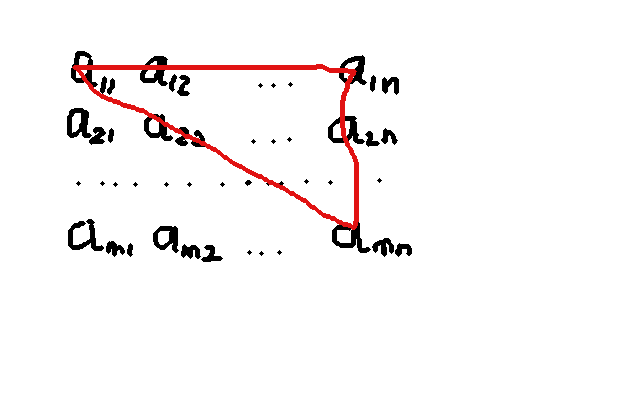 a₁₁ a₁₂ ... a₁ₙ
a₂₁ a₂₂ ... a₂ₙ
. . . . . . . . . . . . . .
aₘ₁ aₘ₂ ... aₘₙ